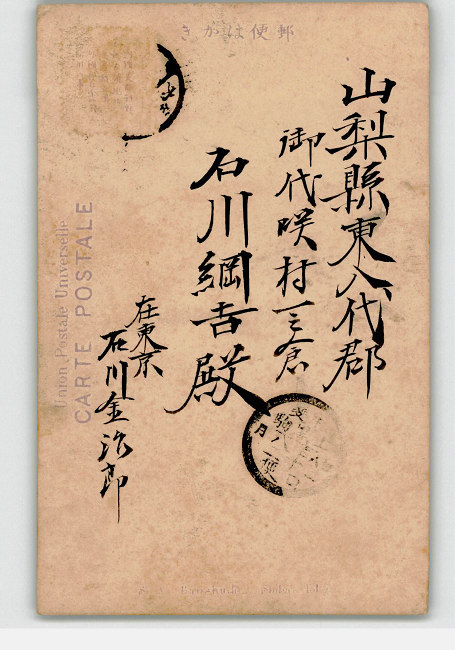 郵便はがき
山梨縣東八代郡
御代咲村一三倉
石川綱吉殿
在東京
石川金治郎
Union Postale Universelle
CARTE POSTALE